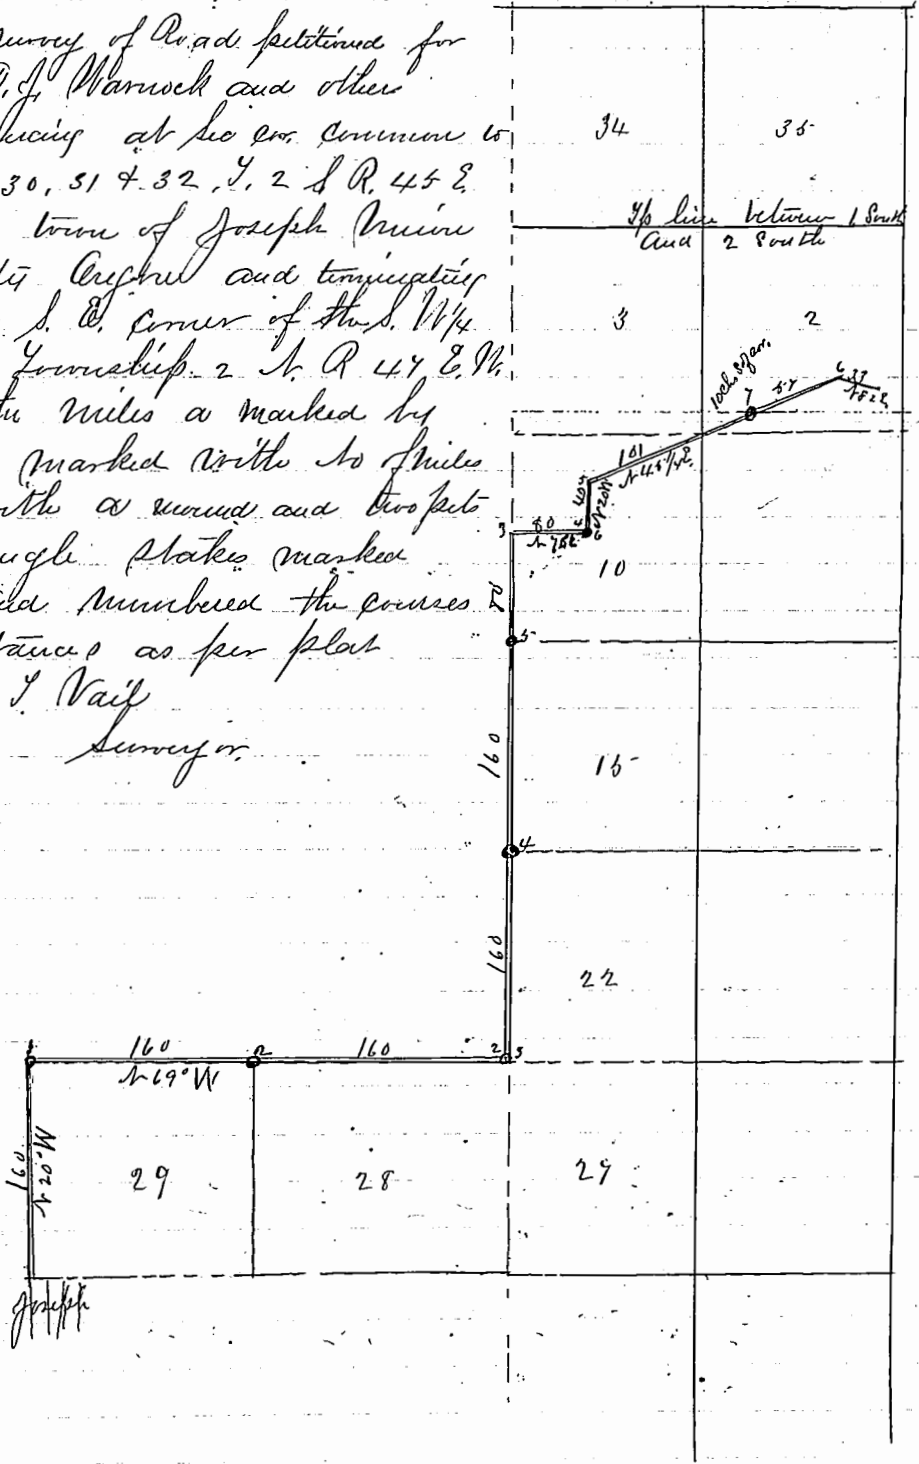 urvey of Road petitioned for
T. J. Warnock and others
ncing at Sec cor. common to
30, 31 & 32, T. 2 S R. 45 E
town of Joseph Union
ty Oregon and terminating
S. E. corner of the S. W 1/4
Township 2 N. R 47 E. W.
miles a marked by
marked with No of miles
th a mound and two pits
ngle stakes marked
nd numbered the courses
tances as per plat
T Vail
Surveyor.
34 35
T/p line between 1 South
and 2 South
3 2
57 6 37
7
101
N 45 1/2 E.
404
N 20 W
3 80 4
6
10
80
5
160
15
4
160
22
1 160 2 160 2 3
N 69° W
160
N 20 W
29 28 27
Joseph